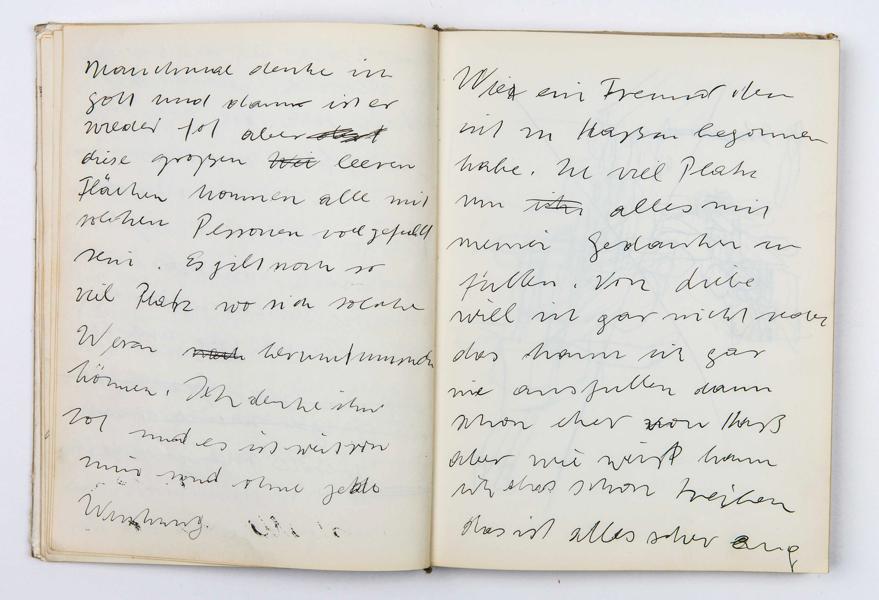 Manchmal denke ich
Gott und dann ist er
wieder tot aber
diese großen leeren
Flächen können alle mit
solchen Personen voll gefüllt
sein. Es gibt noch so
viel Platz wo sich solche
herumtummeln
können. Ich denke ihn
tot und es ist weit von
mir und ohne jede
Wirkung.
Wie ein Freund den
ich zu Hassen begonnen
habe. Zu viel Platz
um alles mit
meinen Gedanken zu
füllen. Von Liebe
will ich gar nicht reden
das kann ich gar
nie ausfüllen dann
schon eher von Haß
aber wie weit kann
ich das schon treiben
das ist alles sehr eng